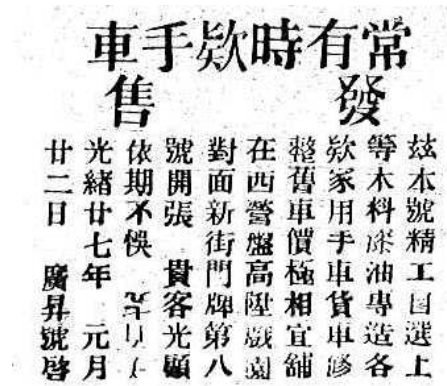 常有時欵手車
發售
玆本號精工固選上
等木料漆油專造各
欵家用手車貨車修
整舊車價極相宜舖
在西營盤高陞戲園
對面新街門牌第八
號開張 貴客光顧
依期不悞
光緒廿七年 元月
廿二日 廣昇號啓